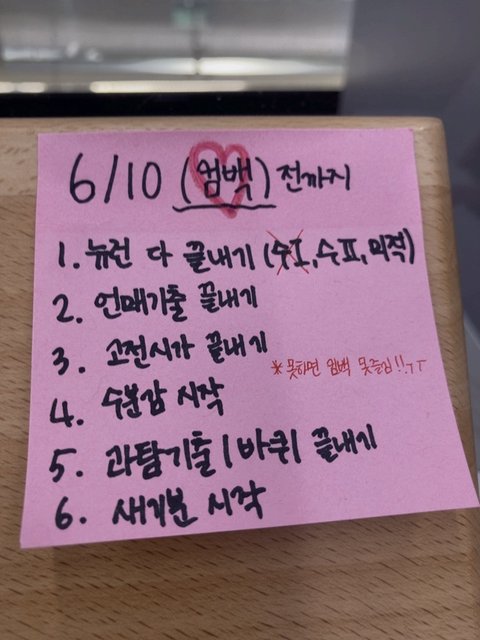 6/10 (컴백) 전까지
1. 뉴런 다 끝내기 (수I, 수II, 미적)
2. 언매기출 끝내기
3. 고전시가 끝내기
※ 못하면 컴백 못즐김!!ㅜㅜ
4. 수분감 시작
5. 과탐기출 1바퀴 끝내기
6. 새기분 시작